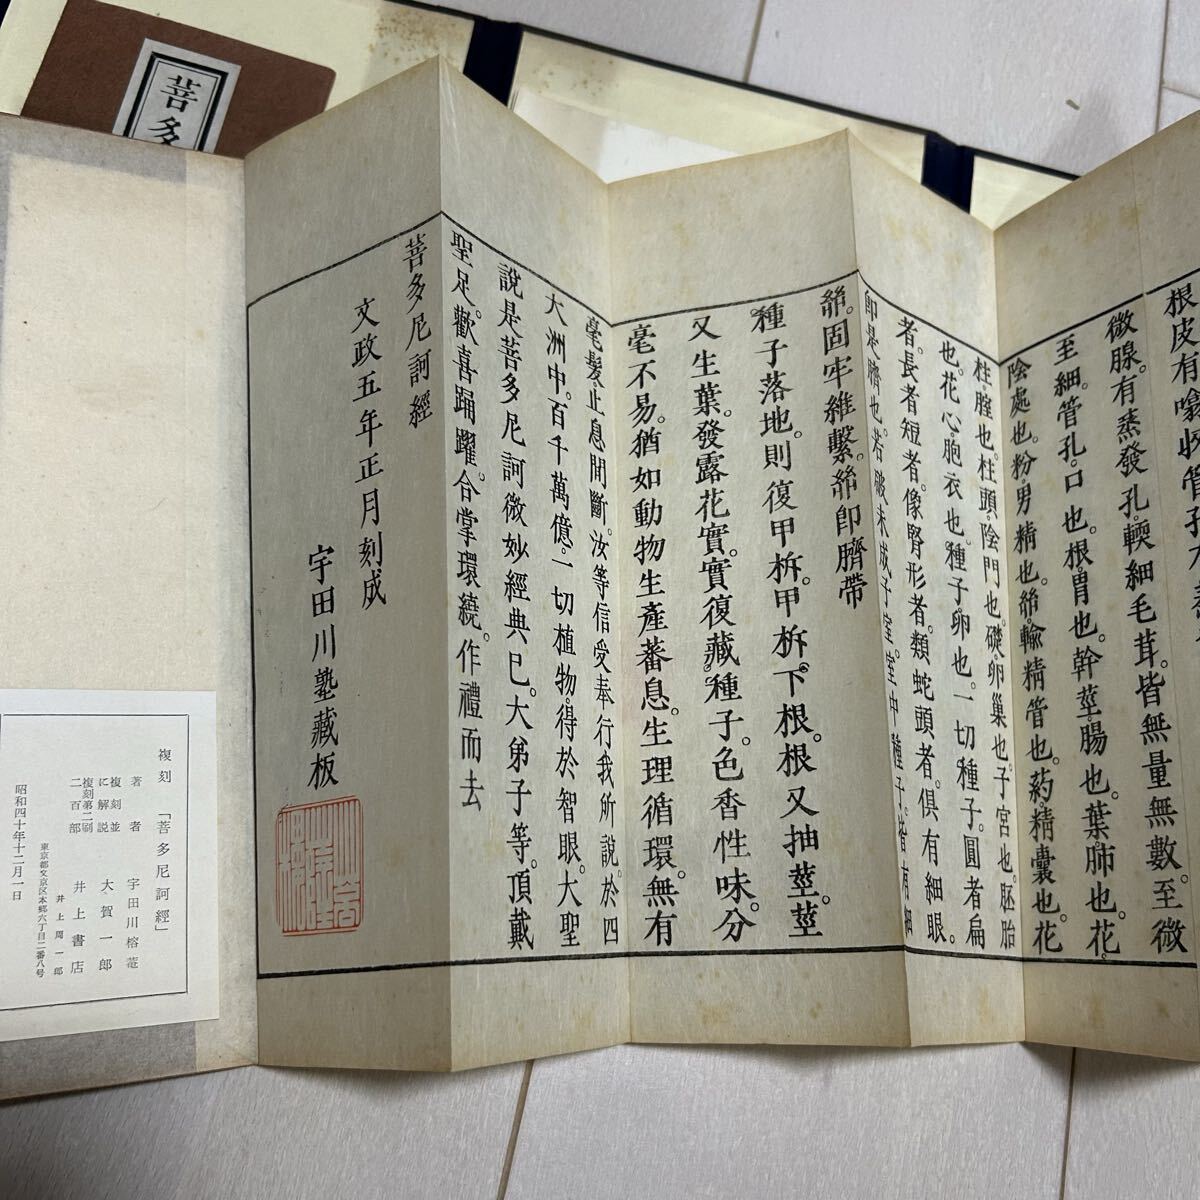 根皮有嚏收管孔
微腺。有蒸發孔輭細毛茸。皆無量無數。至微
至細。管孔。口也。根。胃也。幹莖。腸也。葉。肺也。花。
陰處也。粉。男精也。絲。輸精管也。葯。精囊也。花
柱。膣也。柱頭。陰門也。礎。卵巢也。子宮也。胚胎
也。花心。胞衣也。種子。卵也。一切種子。圓者扁
者。長者短者。像腎形者。類蛇頭者。俱有細眼。
卽是臍也。若破未成子室。室中種子。皆有細
絲。固牢維繫。絲卽臍帶
種子落地。則復甲柝。甲柝。下根。根又抽莖。莖
又生葉。發露花實。實復藏。種子。色香性味。分
毫不易。猶如動物生產蕃息。生理循環。無有
毫髮止息間斷。汝等信受奉行我所說。於四
大洲中。百千萬億。一切植物。得於智眼。大聖
說是菩多尼訶微妙經典已。大弟子等。頂戴
聖足。歡喜踊躍。合掌環繞。作禮而去
菩多尼訶經
文政五年正月刻成
宇田川塾藏板
菩多
複刻 「菩多尼訶經」
著者 宇田川榕菴
複刻並に解説 大賀一郎
複刻第二刷二百部 井上書店
井上周一郎
東京都文京区本郷六丁目二番八号
昭和四十年十二月一日